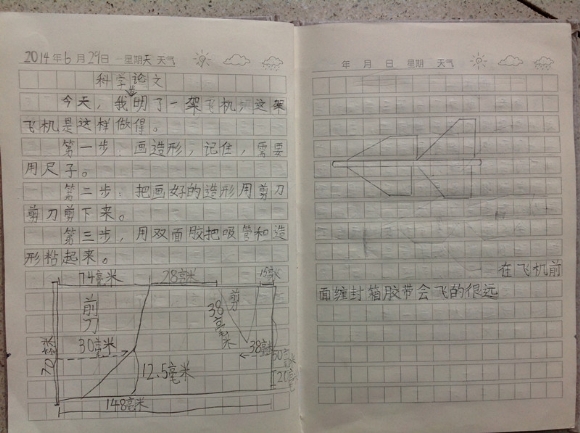 2014年6月29日 星期天 天气
科学论文
今天,我明了一架飞机,这架
飞机是这样做得。
第一步,画造形,记住,需要
用尺子。
第二步,把画好的造形用剪刀
剪刀剪下来。
第三步,用双面胶把吸管和造
形粘起来。
74毫米
78毫米
剪刀
剪
38毫米
30毫米
38毫米
12.5毫米
148毫米
年 月 日 星期 天气
在飞机前
面缠封箱胶带会飞的很远